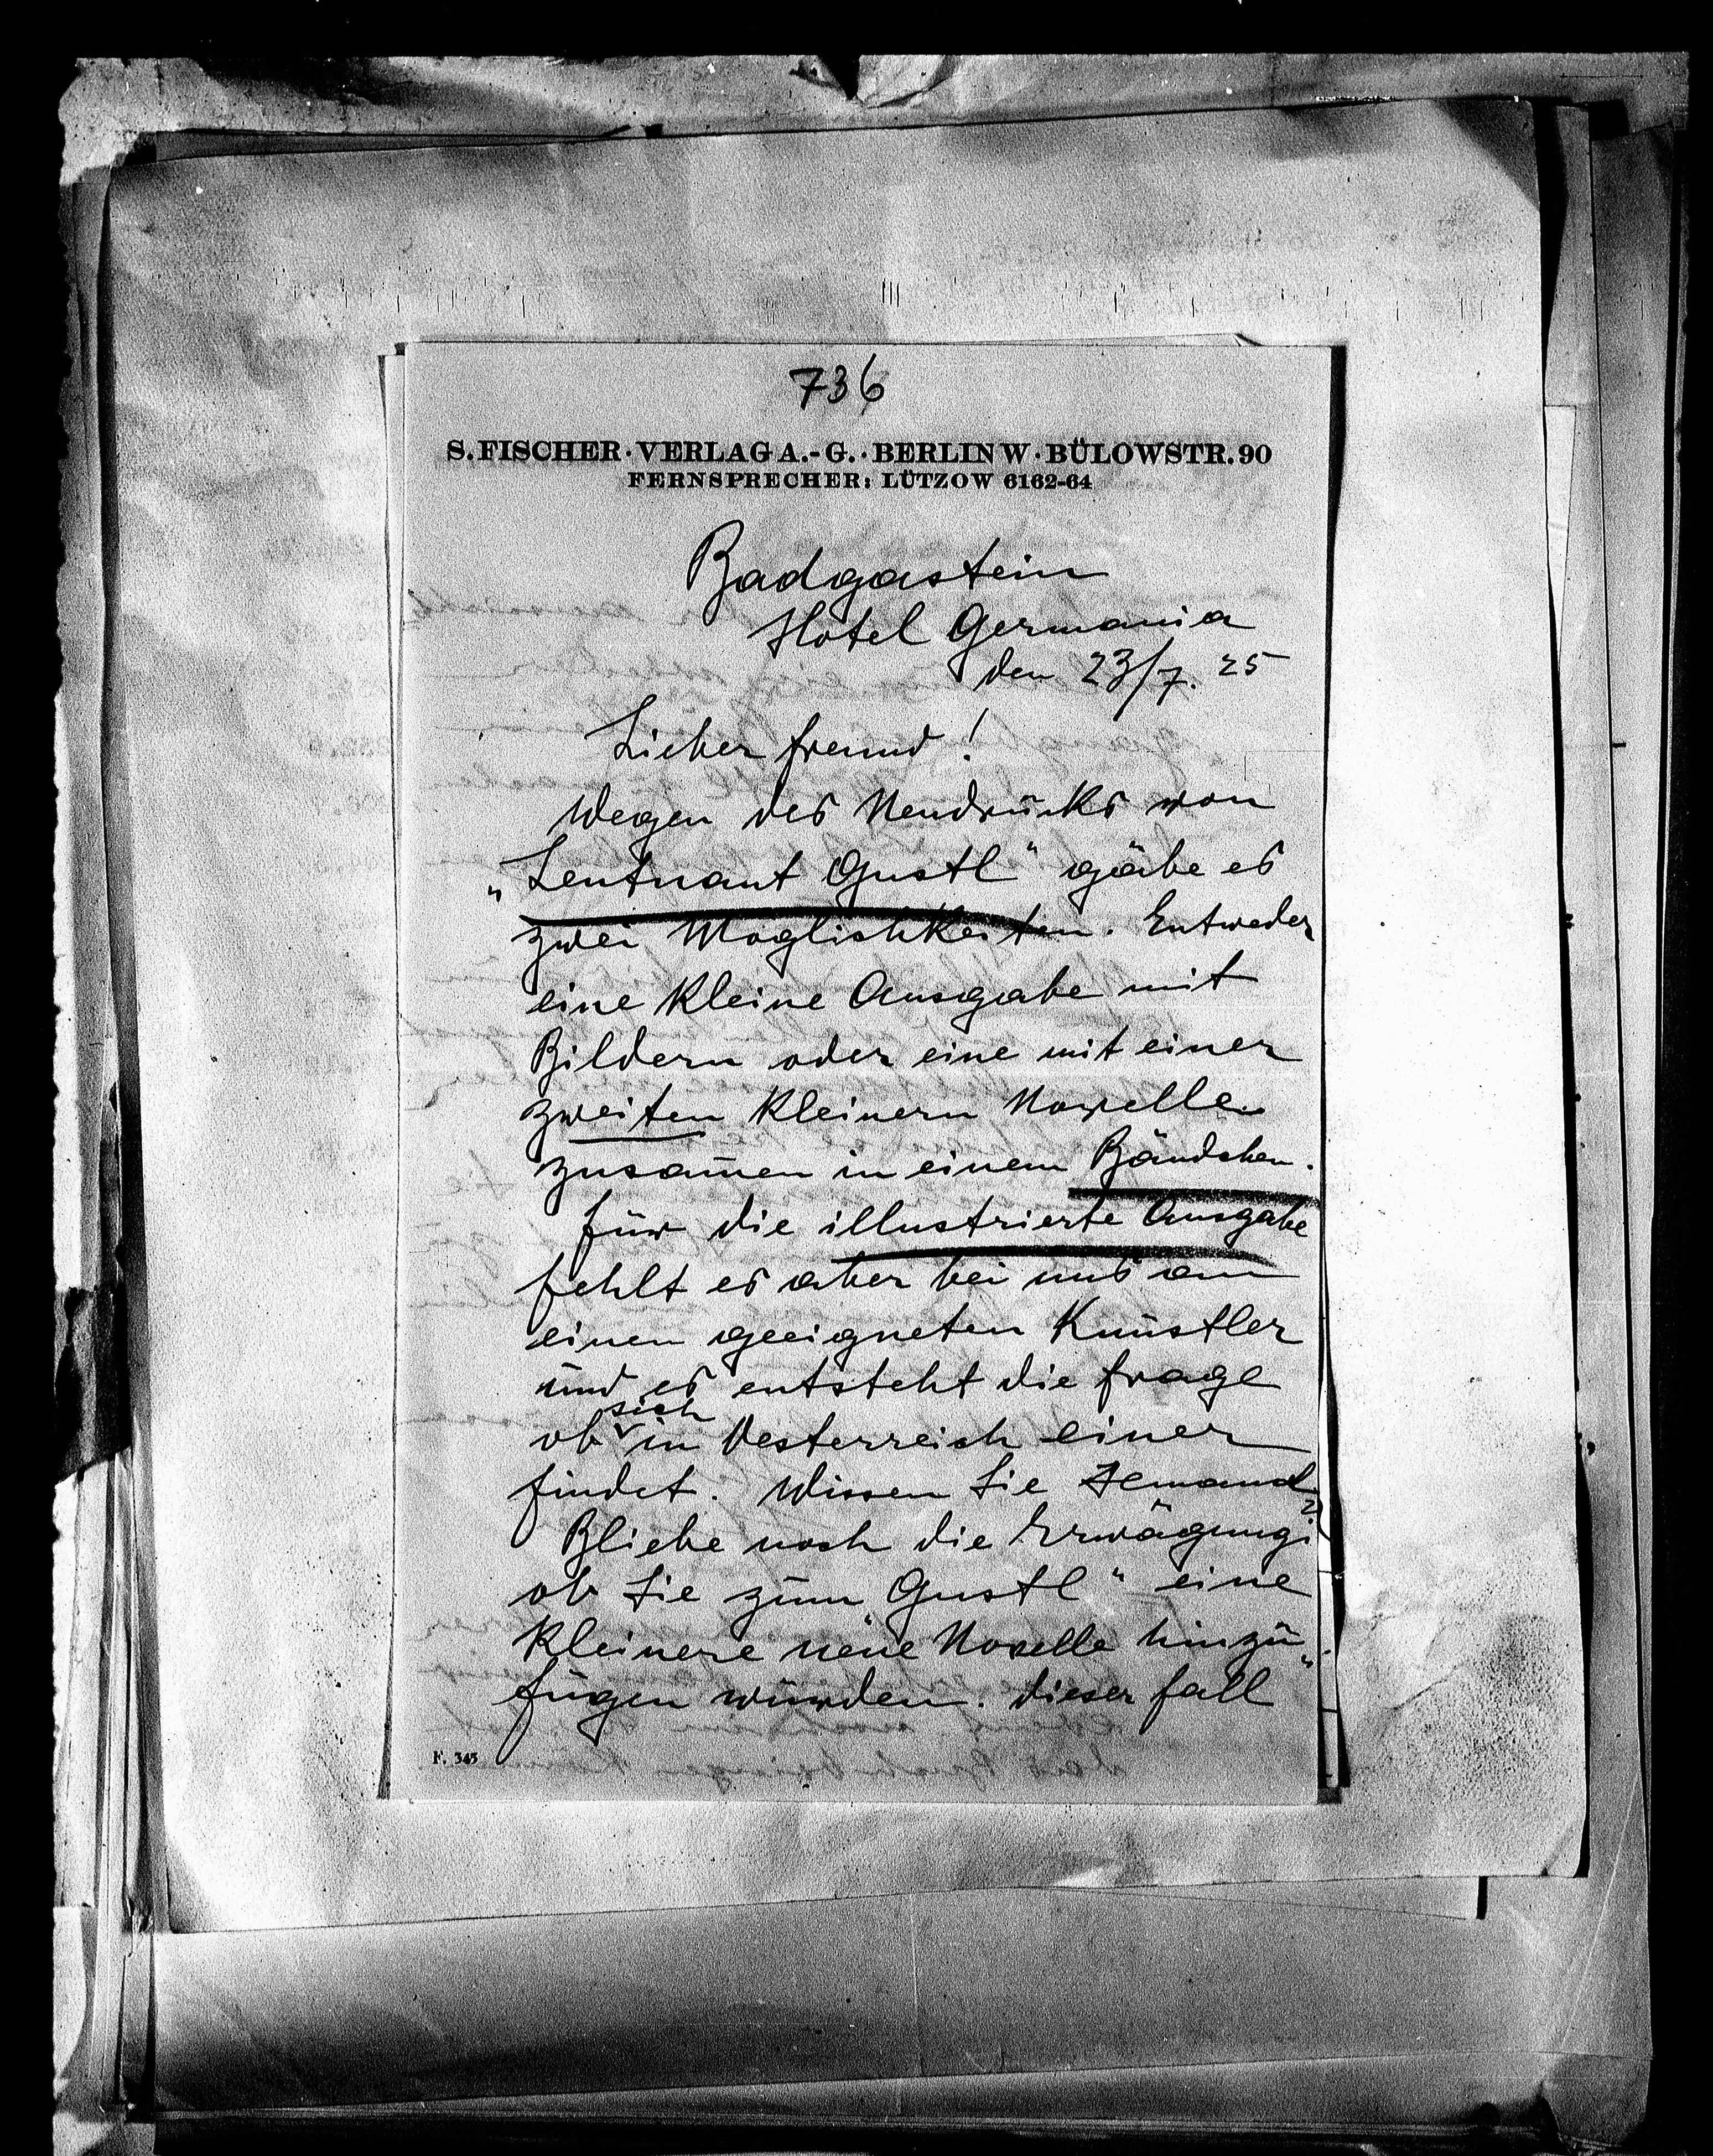 736
S. FISCHER · VERLAG A.-G. · BERLIN W · BÜLOWSTR. 90
FERNSPRECHER: LÜTZOW 6162-64
Badgastein
Hotel Germania
den 23/7. 25
Lieber Freund!
Wegen des Neudrucks von
„Leutnant Gustl“ gäbe es
zwei Möglichkeiten. Entweder
eine kleine Ausgabe mit
Bildern oder eine mit einer
zweiten kleinern Novelle
zusam̅en in einem Bändchen.
Für die illustrierte Ausgabe
fehlt es aber bei uns an
einen geeigneten Künstler
und es entsteht die Frage
sich
ob in Oesterreich einer
findet. Wissen Sie Jemand?
Bliebe noch die Erwägung
ob Sie zum Gustl“ eine
kleinere neue Novelle hinzu„
fügen würden. Dieser Fall
F. 343